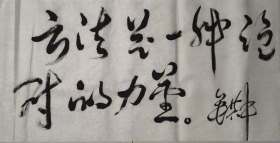 方法是一种绝
对的力量。